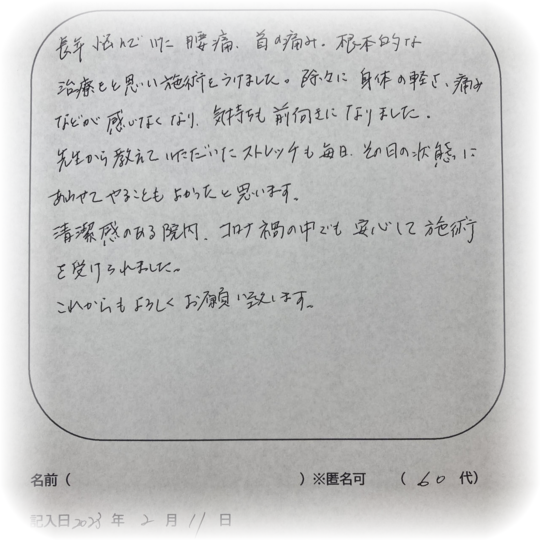 長年悩んでいた腰痛、首の痛み。根本的な
治療をと思い施術をうけました。除々に身体の軽さ、痛み
などが感じなくなり、気持ちも前向きになりました。
先生から教えていただいたストレッチも毎日、その日の状態に
あわせてやることもよかったと思います。
清潔感のある院内、コロナ禍の中でも安心して施術
を受けられました。
これからもよろしくお願い致します。
名前( )※匿名可 (60代)
記入日2023年2月11日